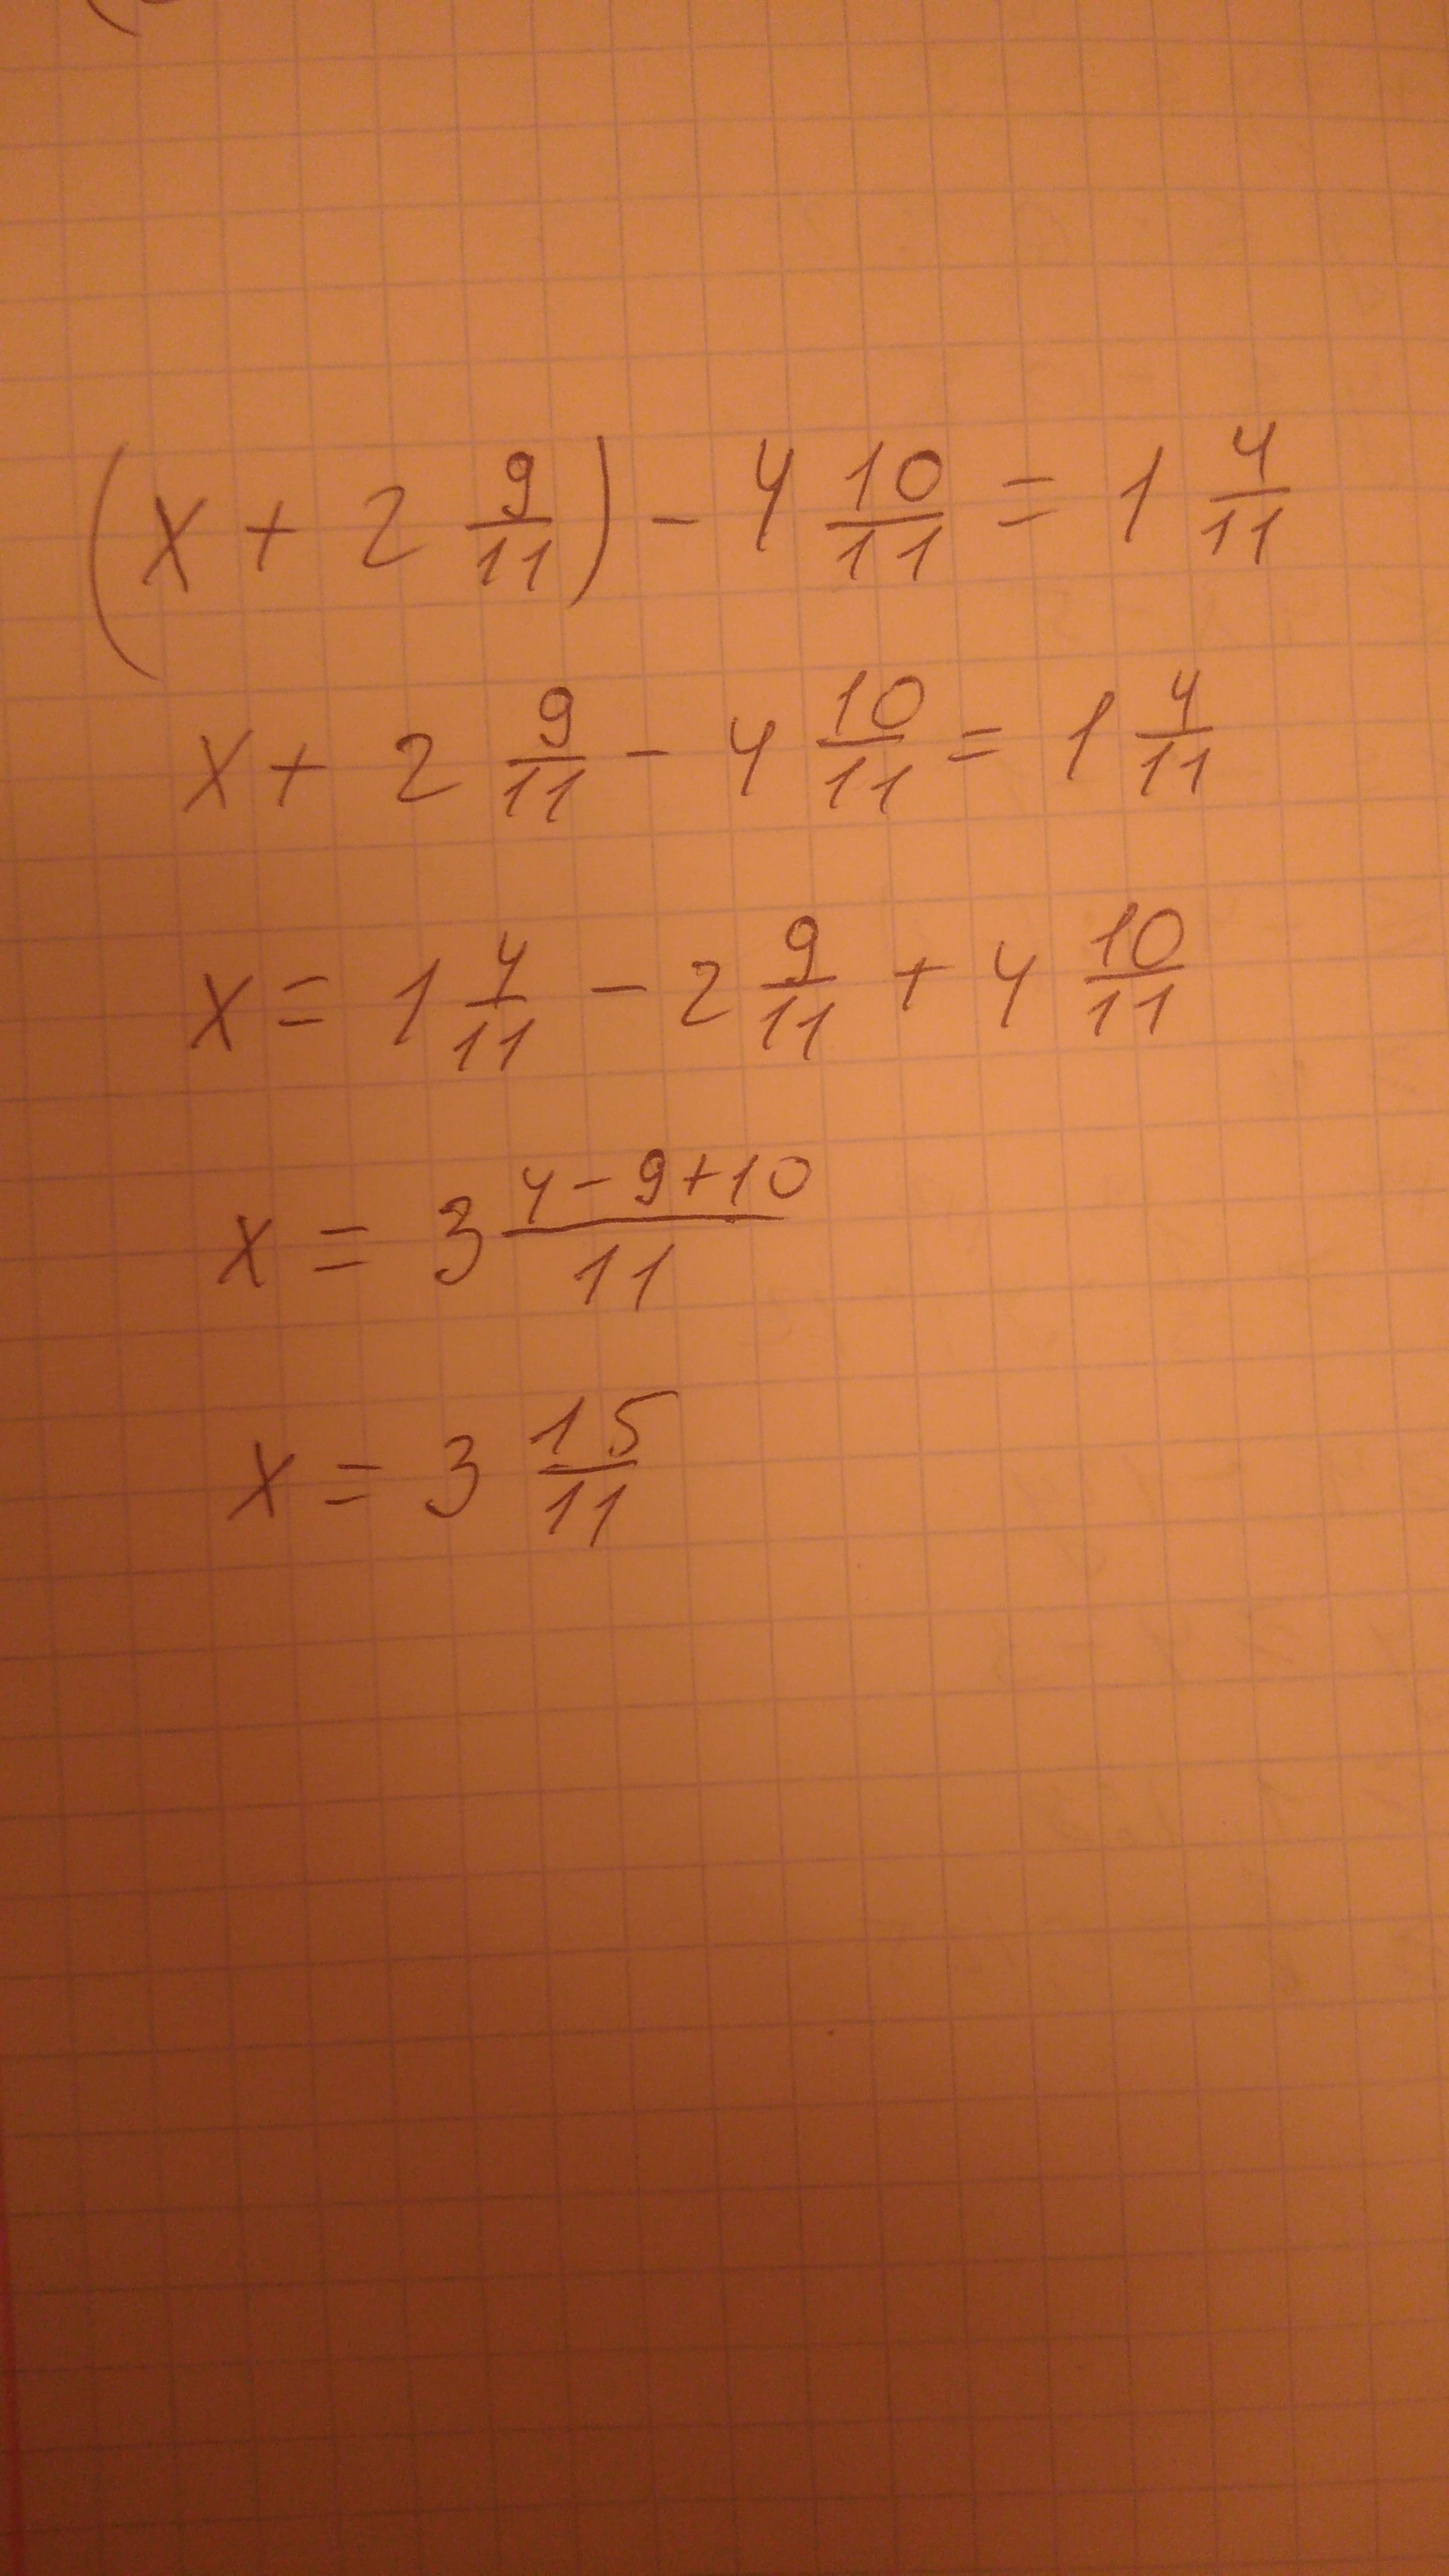 (x + 2 9/11) - 4 10/11 = 1 4/11
x + 2 9/11 - 4 10/11 = 1 4/11
x = 1 4/11 - 2 9/11 + 4 10/11
x = 3 (4 - 9 + 10)/11
x = 3 15/11